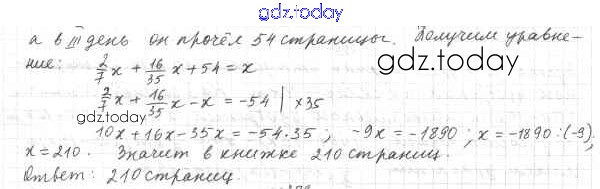 gdz.today
а в III день он прочёл 54 страницы. Получим уравне-
ние: 2/7 x + 16/35 x + 54 = x
gdz.today
2/7 x + 16/35 x - x = -54 | ×35
gdz.today
10x + 16x - 35x = -54·35; -9x = -1890; x = -1890:(-9);
x = 210. Значит в книжке 210 страниц.
Ответ: 210 страниц.